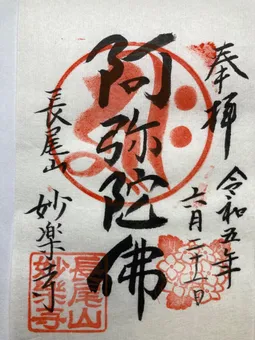 奉拝
令和五年
六月二十一日
阿弥陀佛
長尾山
妙楽寺
長尾山
妙楽寺